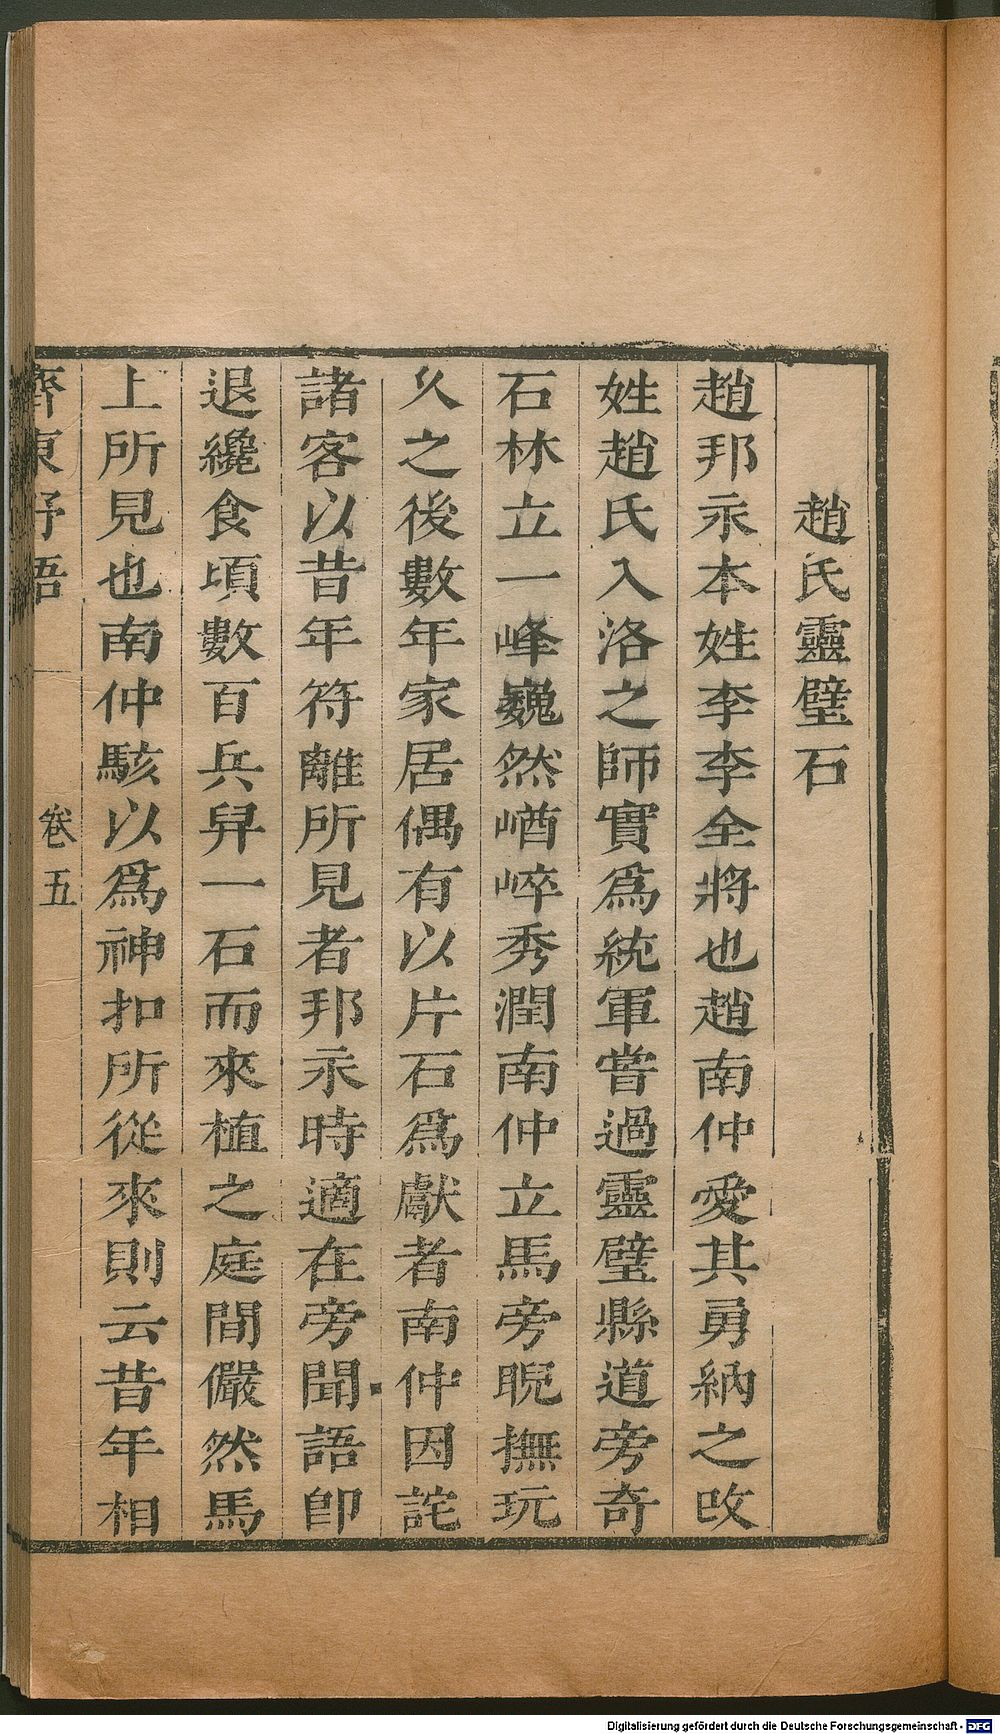 趙氏靈璧石
趙邦永本姓李李全將也趙南仲愛其勇納之改
姓趙氏入洛之師實爲統軍嘗過靈璧縣道旁奇
石林立一峰巍然崷崒秀潤南仲立馬旁睨撫玩
久之後數年家居偶有以片石爲獻者南仲因詫
諸客以昔年符離所見者邦永時適在旁聞語卽
退纔食頃數百兵舁一石而來植之庭間儼然馬
上所見也南仲駭以爲神扣所從來則云昔年相
齊東野語 卷五
Digitalisierung gefördert durch die Deutsche Forschungsgemeinschaft - DFG